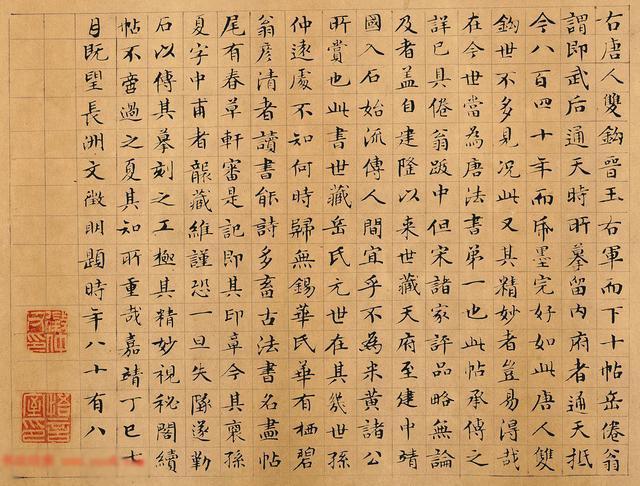 右唐人雙鈎晉王右軍而下十帖岳倦翁
謂即武后通天時所摹留内府者通天抵
今八百四十年而帋墨完好如此唐人雙
鈎世不多見况此又其精妙者豈易得哉
在今世當為唐法書第一也此帖承傳之
詳已具倦翁跋中但宋諸家評品略無論
及者盖自建隆以来世藏天府至建中靖
國入石始流傳人間宜乎不為米黄諸公
所賞也此書世藏岳氏元世在其幾世孫
仲遠處不知何時歸無錫華氏華有栖碧
翁彦清者讀書能詩多畜古法書名畫帖
尾有春草軒審是記即其印章今其裔孫
夏字中甫者襲藏維謹恐一旦失墜遂勒
石以傳其摹刻之工極其精妙視秘閣續
帖不啻過之夏其知所重哉嘉靖丁巳七
月既望長洲文徵明題時年八十有八
徵仲父印
悟言室印